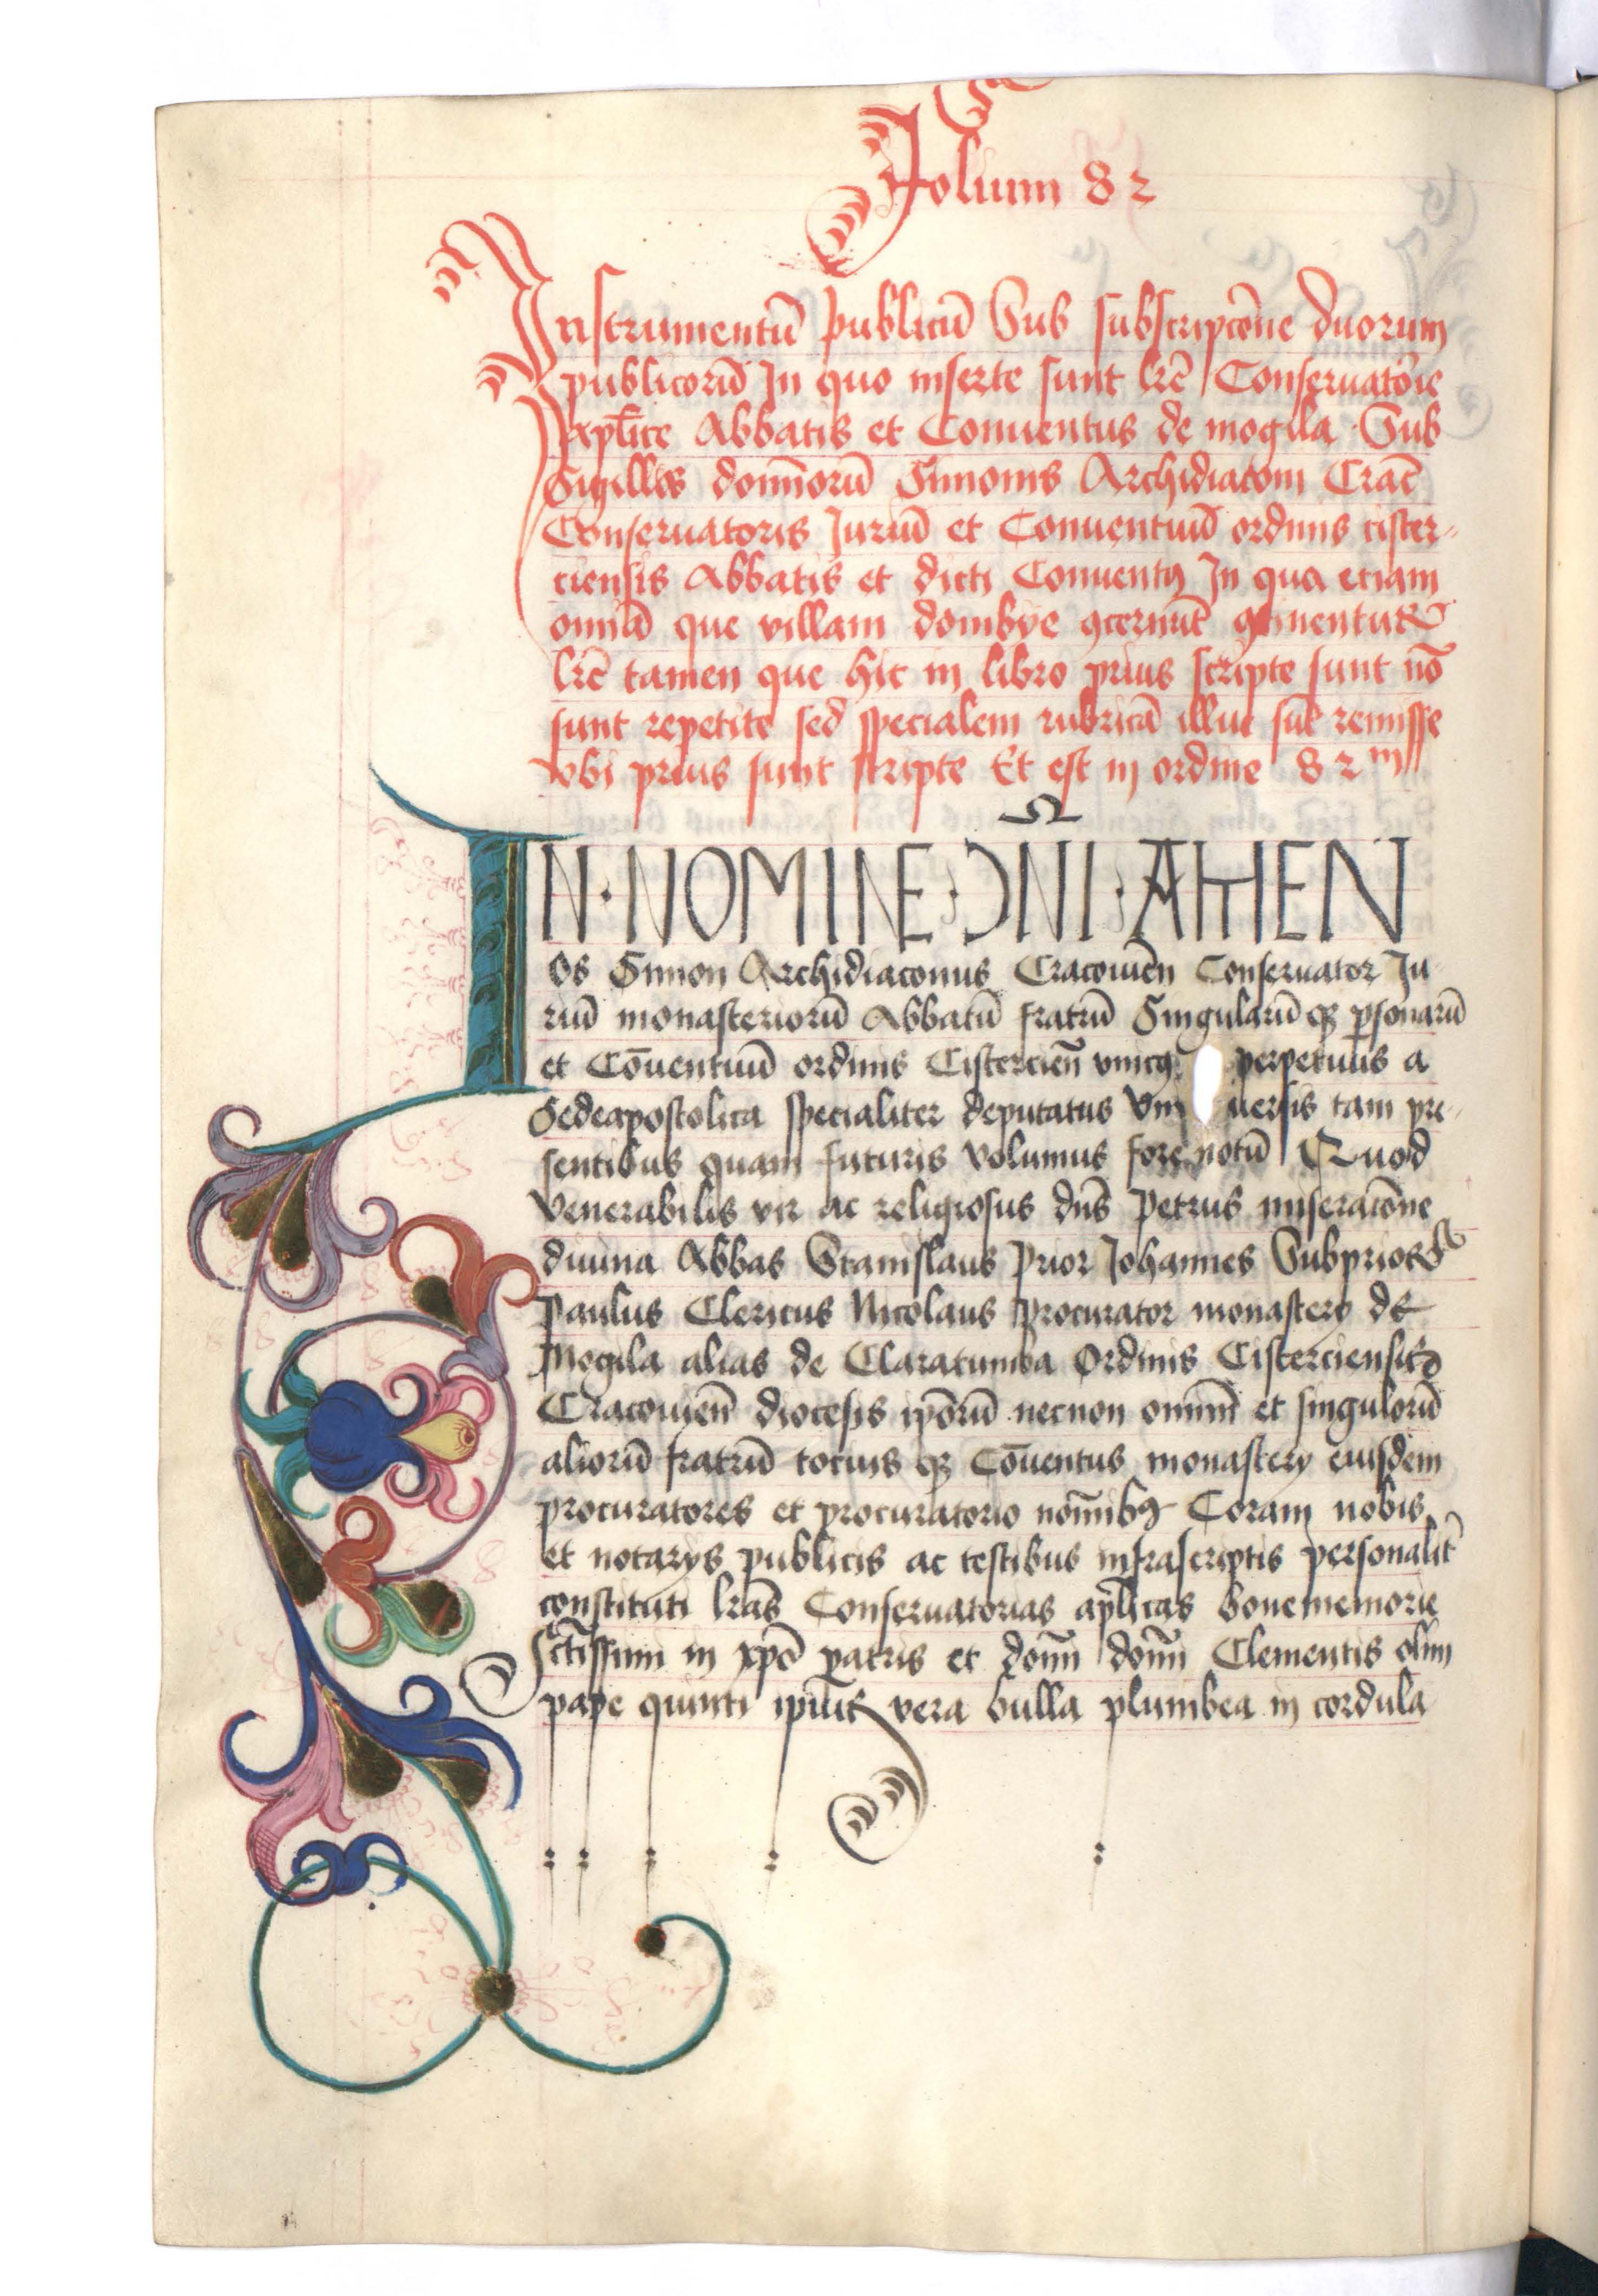 Folium 82
Instrumentū publicū Sub subscripcōne duorum
publicorū In quo inserte sunt lrē Conseruatorie
aplīce Abbatis et Conuentus de mogila Sub
Sigillis domīnorū Simonis Archidiaconi Crac̄
Conseruatoris Iuriū et Conuentuū ordinis cister-
ciensis Abbatis et dicti Conuentꝯ In quo etiam
omīa que villam dombye ꝯcernūt ꝯtinentur
lrē tamen que hic in libro prius scripte sunt nō
sunt repetite sed specialem rubricā illuc sūt remisse
vbi prius sunt scripte Et est in ordine 82m
IN · NOMINE · DNI · AMEN
Os Simon Archidiaconus Cracouiēn Conseruator Iu-
riū monasteriorū Abbatū fratrū Singularū qꝫ personarū
et Cōuentuū ordinis Cistercieñ vnicꝯ perpetuus a
Sedeapostolica specialiter deputatus Vni uersis tam pre-
sentibus quam futuris volumus fore notū Quod
Venerabilis vir ac religiosus dn̄s Petrus miseracōne
diuina Abbas Stanislaus Prior Iohannes Subprior
Paulus Clericus Nicolaus Procurator monastery de
Mogila alias de Claratumba Ordinis Cisterciensis
Cracouieñ diocesis ip̄orū necnon omnīū et singulorū
aliorū fratrū tocius qꝫ Cōuentus monastery eiusdem
procuratores et procuratorio nomībꝯ Coram nobis
et notarys publicis ac testibus infrascriptis personalit̄
constituti lrās Conseruatorias aplīcas bonememorie
Sctīssimi in xp̄o patris et domī domī Clementis olim
pape quinti ipīus vera bulla plumbea in cordula